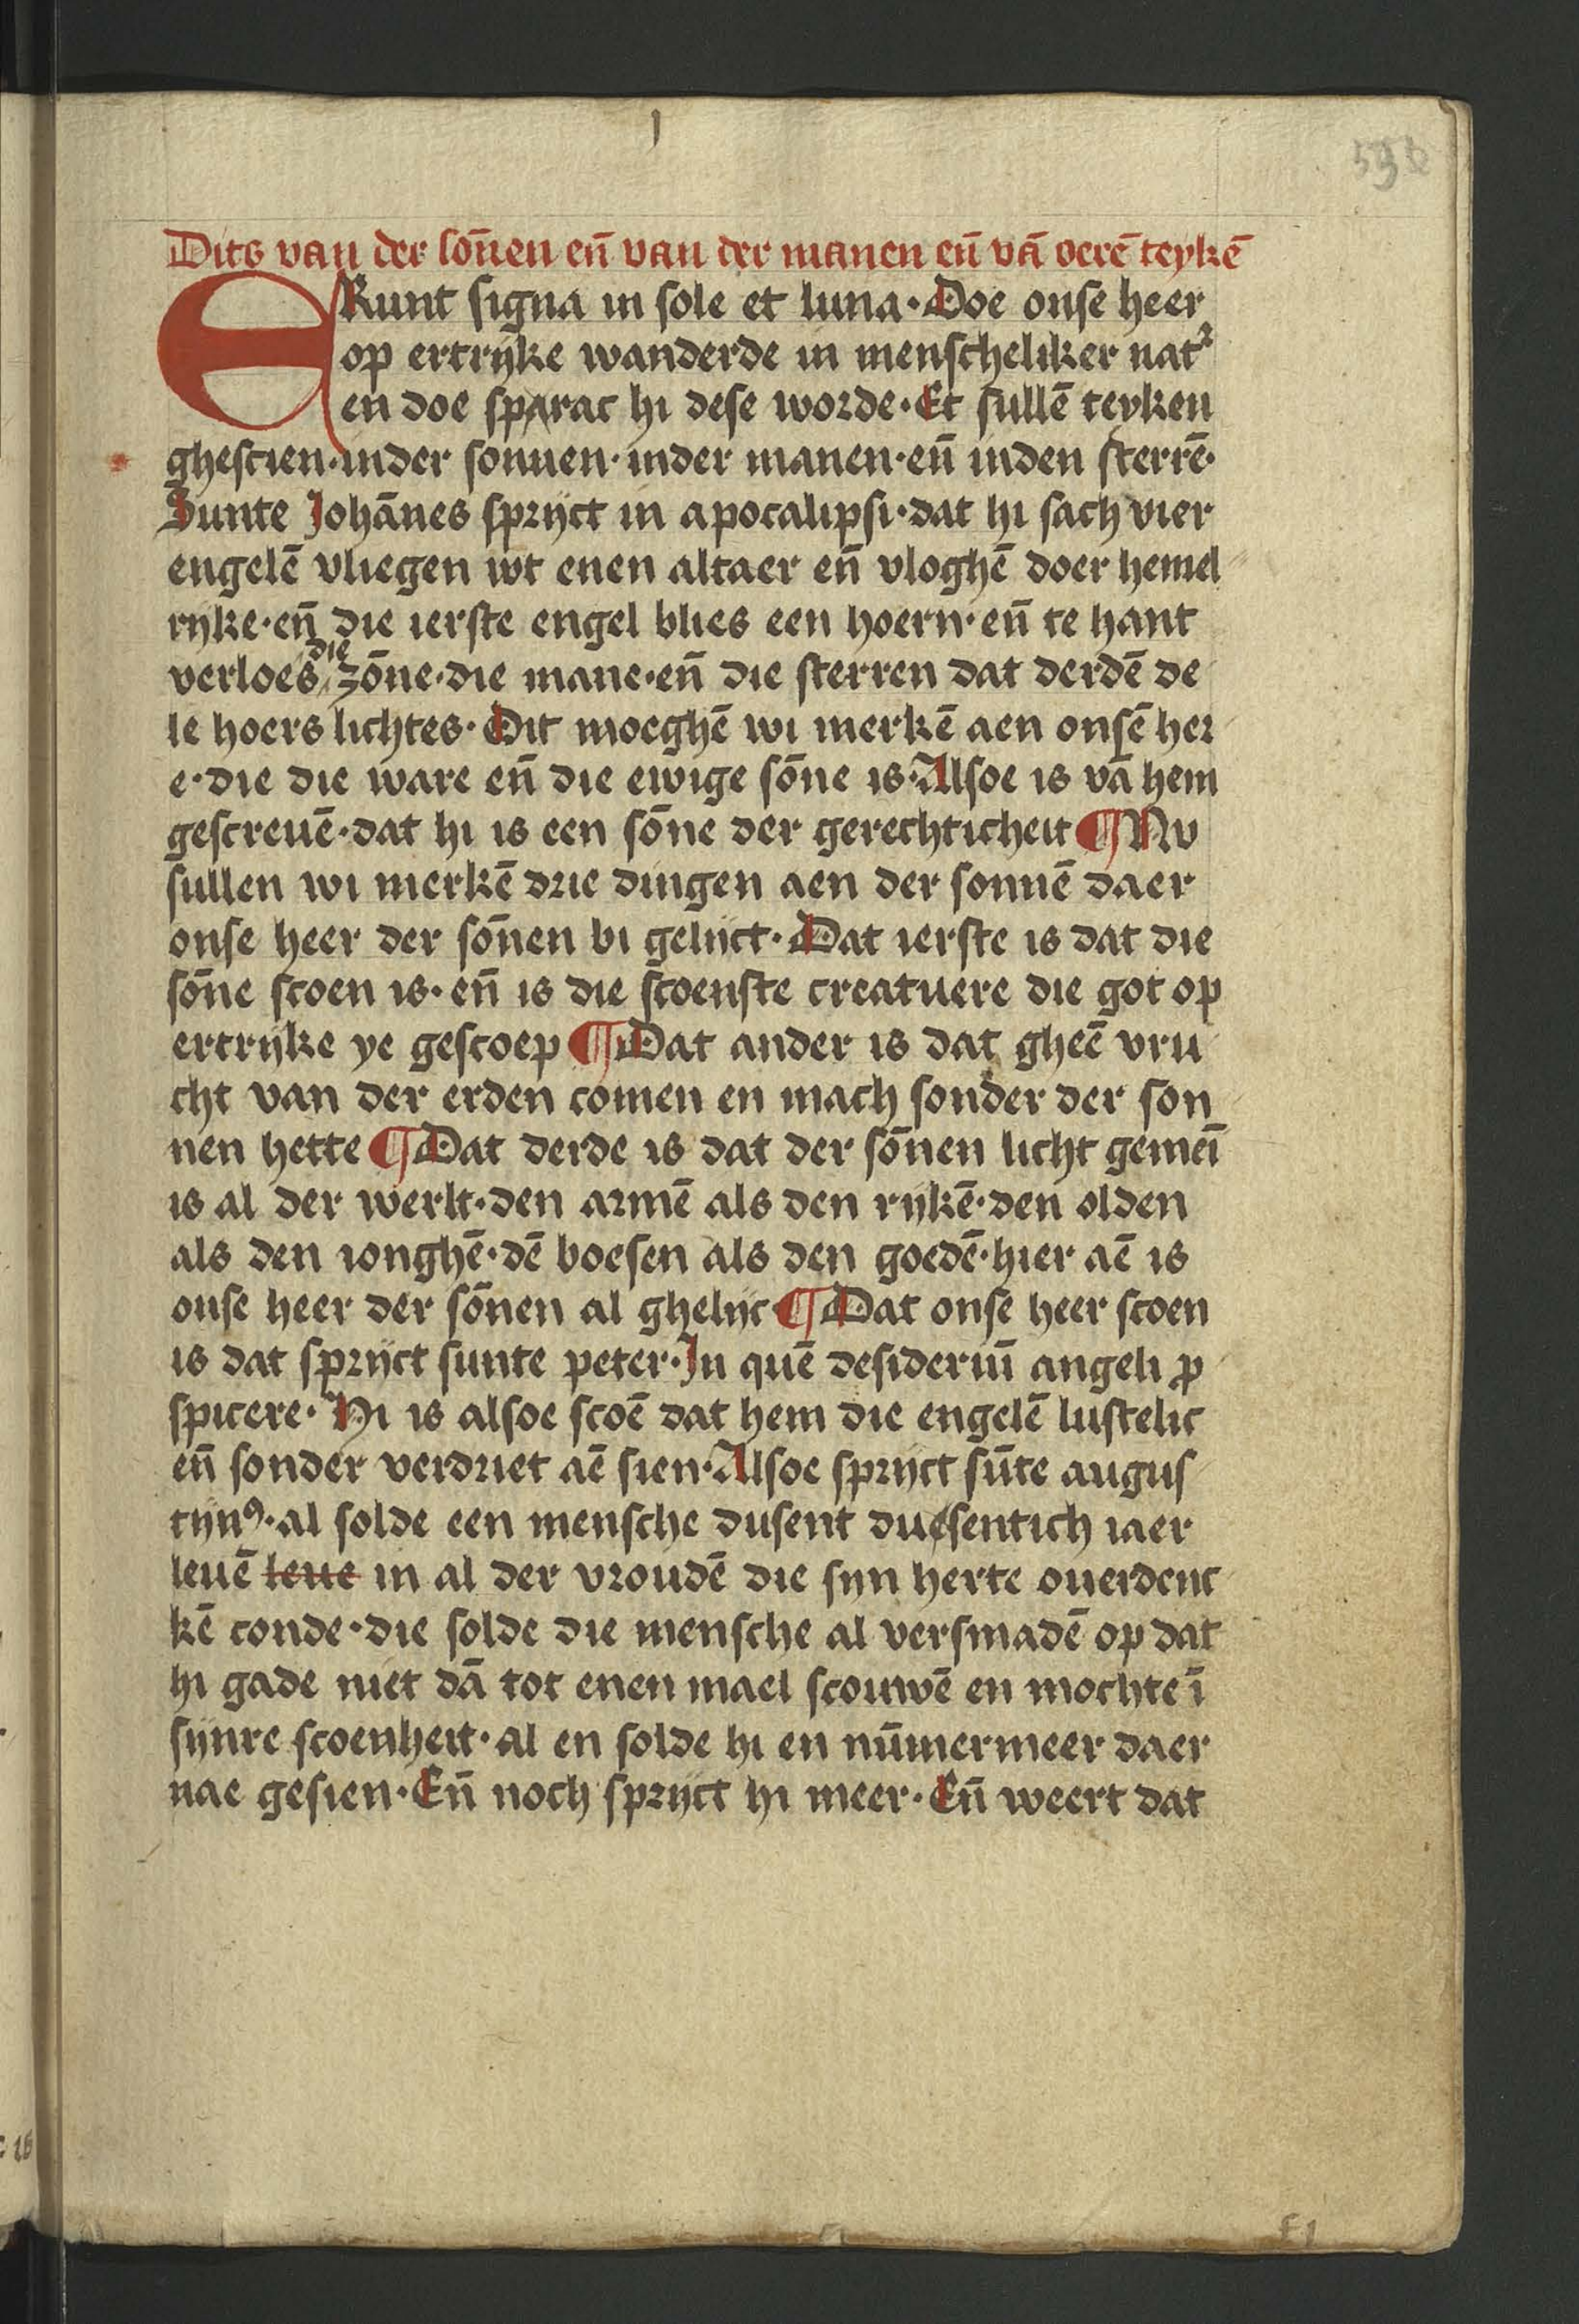 I
596
Dits van der sōnen eñ van der manen eñ vā oerē teykē
ERunt signa in sole et luna · Doe onse heer
op ertrijke wanderde in menscheliker nat᷑
en doe sparac hi dese worde · Et sullē teyken
ghescien · inder sonnen · inder manen · eñ inden sterrē ·
Sunte Johānes sprijct in apocalipsi · dat hi sach vier
engelē vliegen wt enen altaer eñ vloghē doer hemel
rijke · eñ die ierste engel blies een hoern · eñ te hant
die
verloes zōne · die mane · eñ die sterren dat derdē de
le hoers lichtes · Dit moeghē wi merkē aen onsē her
e · die die ware eñ die ewige sōne is · Alsoe is vā hem
gescreuē · dat hi is een sōne der gerechticheit ¶ Nv
sullen wi merkē drie dingen aen der sonnē daer
onse heer der sōnen bi gelijct · Dat ierste is dat die
sōne scoen is · eñ is die scoenste creatuere die got op
ertrijke ye gescoep ¶ Dat ander is dat gheē vru
cht van der erden comen en mach sonder der son
nen hette ¶ Dat derde is dat der sōnen licht gemeī
is al der werlt · den armē als den rijkē · den olden
als den ionghē · dē boesen als den goedē · hier aē is
onse heer der sōnen al ghelijc · ¶ Dat onse heer scoen
is dat sprijct sunte peter · In quē desideriū angeli ꝓ
spicere · Hi is alsoe scoē dat hem die engelē lustelic
eñ sonder verdriet aē sien · Alsoe sprijct sūte augus
tijnꝰ · al solde een mensche dusent duesentich iaer
leuē leue in al der vroudē die sijn herte ouerdenc
kē conde · die solde die mensche al versmadē op dat
hi gade niet dā tot enen mael scouwē en mochte ī
sijnre scoenheit · al en solde hi en nūmermeer daer
nae gesien · Eñ noch sprijct hi meer · Eñ weert dat